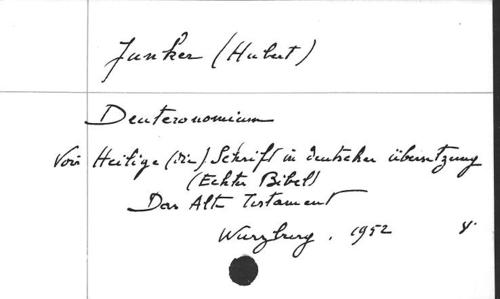 Junker (Hubert)
Deuteronomium
Voir Heilige (Die) Schrift in deutscher übersetzung
(Echter Bibel)
Das Alte Testament
Wurzburg. 1952